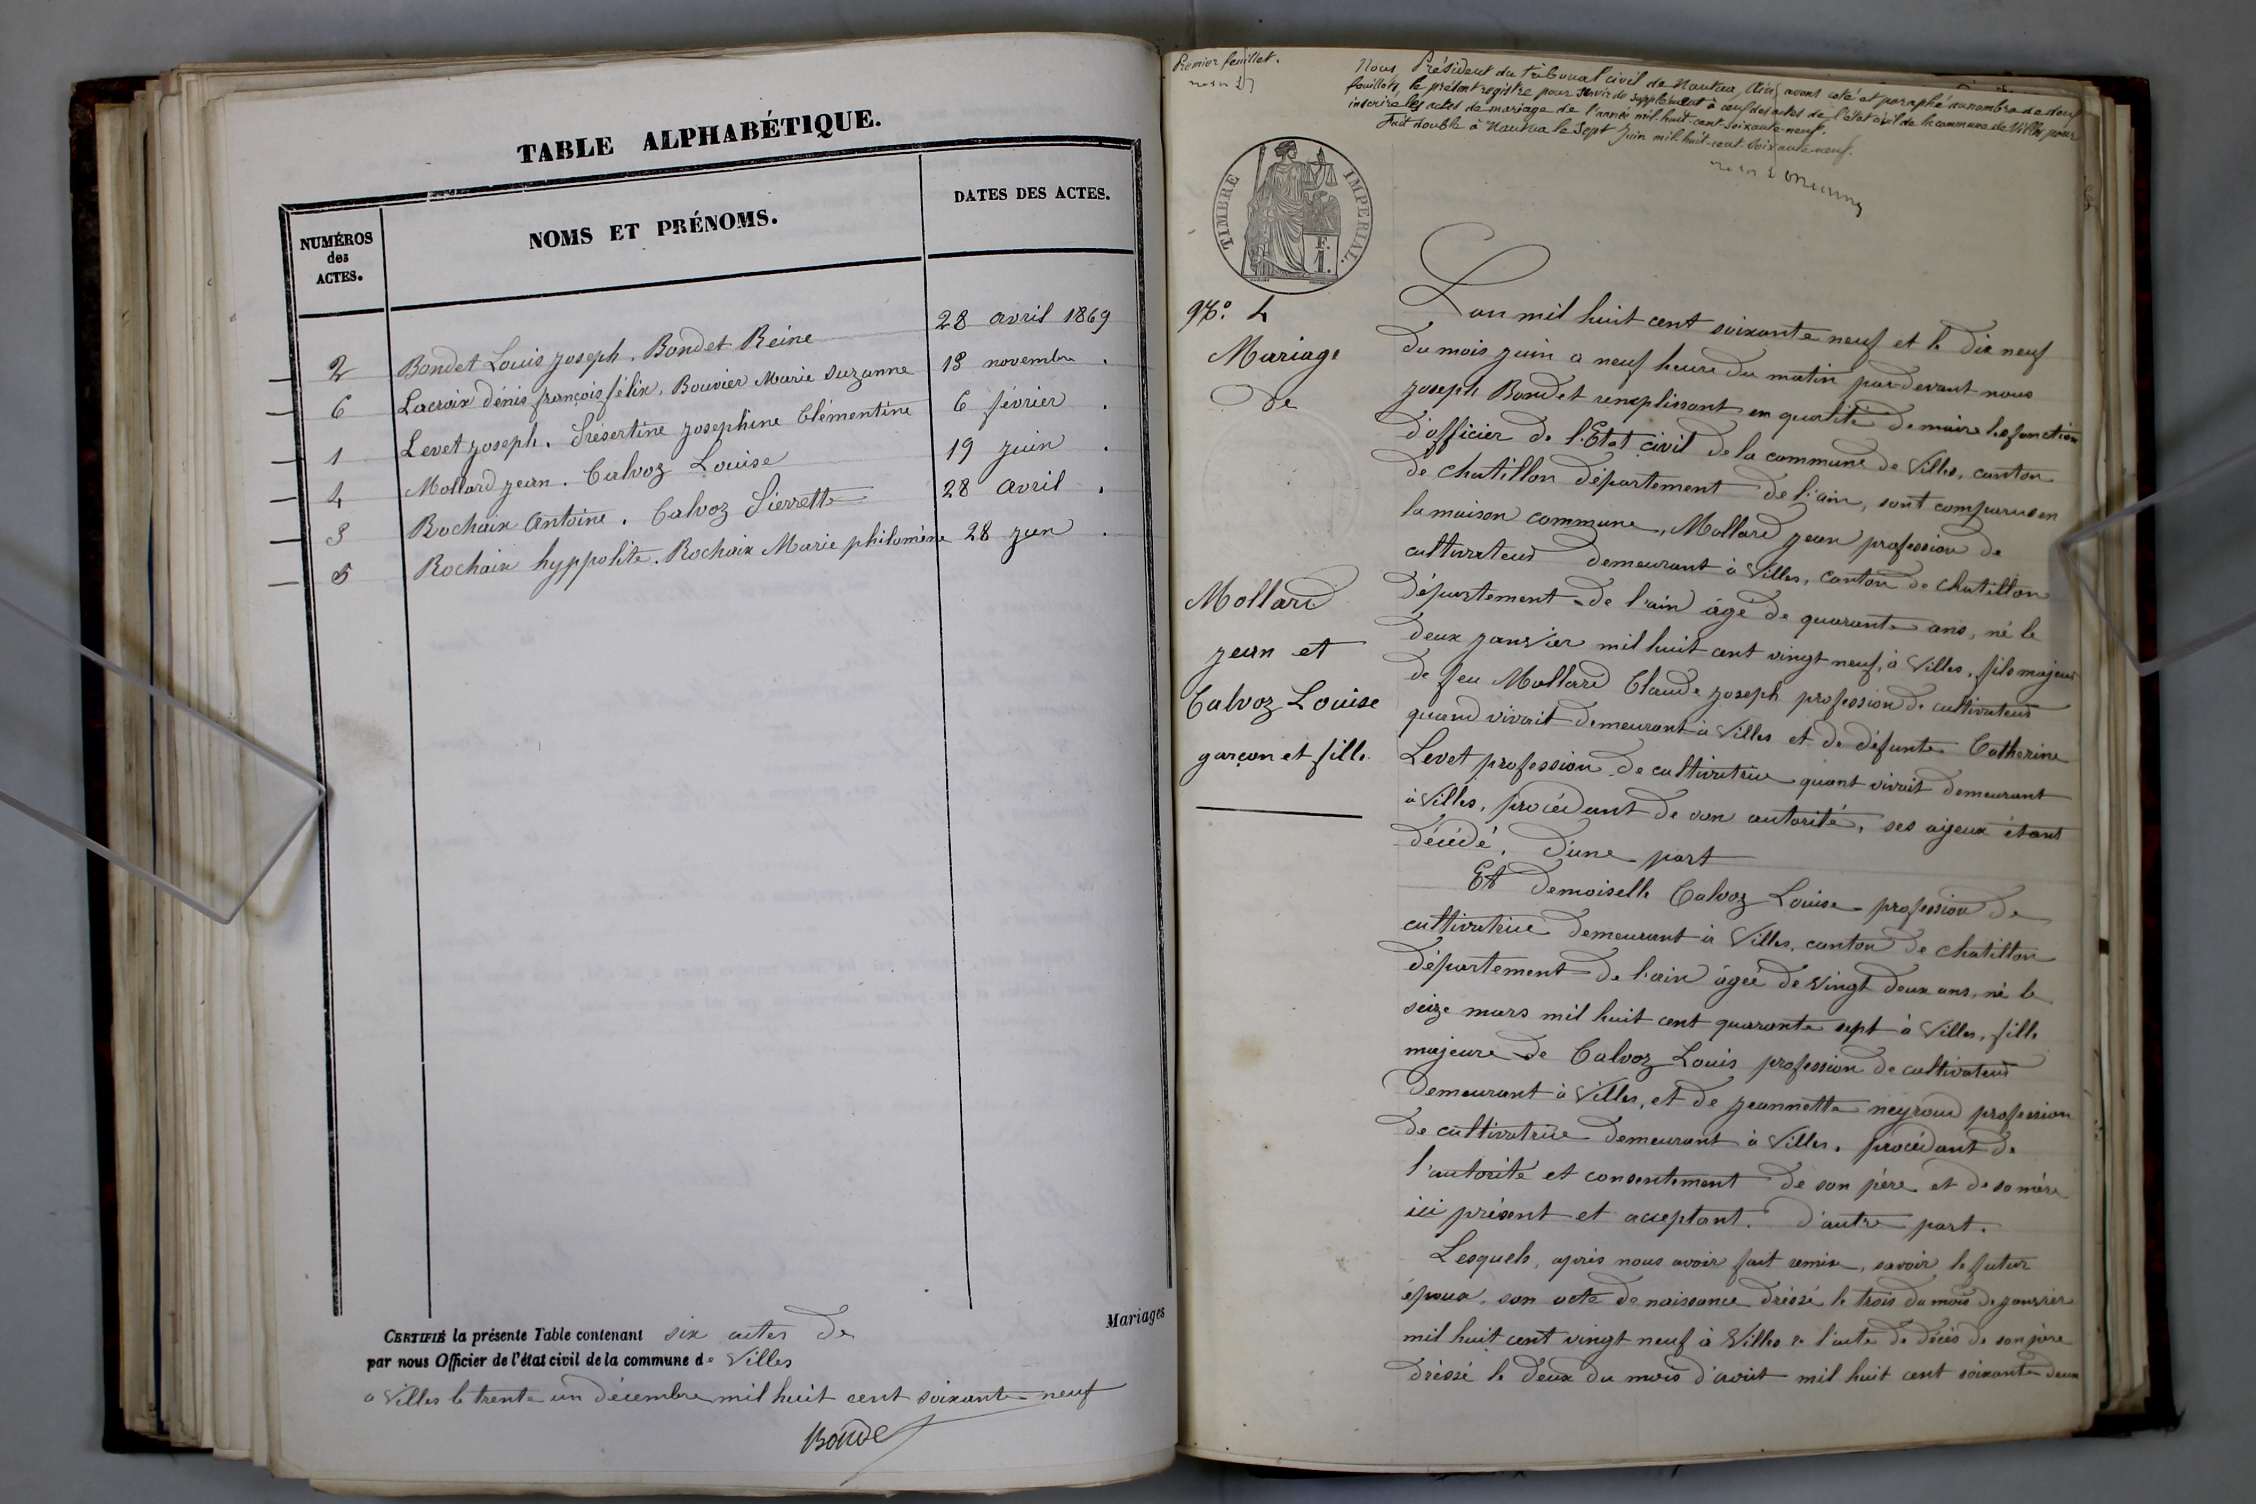 TABLE ALPHABÉTIQUE.
NUMÉROS des ACTES.
NOMS ET PRÉNOMS.
DATES DES ACTES.
2 Bondet Louis Joseph. Bondet Reine 28 avril 1869
6 Lacroix dénis françois félix. Bouvier Marie Suzanne 13 novembre .
1 Levet Joseph. Trésertine Josephine Clémentine 6 février .
4 Mollard Jean. Calvoz Louise 19 juin .
3 Rochaix Antoine. Calvoz Pierrette 28 avril .
5 Rochaix hyppolite. Rochaix Marie philomène 28 juin .
CERTIFIÉ la présente Table contenant six actes de Mariages
par nous Officier de l'état civil de la commune de Villes
a Villes le trente un décembre mil huit cent soixante neuf
Bondet
Premier feuillet.
Nous Président du tribunal civil de Nantua (Ain) avons coté et paraphé au nombre de deux
feuillets, le présent registre pour servir de supplément à ceux des actes de l'état civil de la commune de Villes pour
inscrire les actes de mariage de l'année mil-huit-cent soixante-neuf.
Fait double à Nantua le Sept Juin mil-huit-cent-soixante-neuf.
TIMBRE IMPERIAL.
1 F.
No. 4
Mariage
de
Mollard
Jean et
Calvoz Louise
garçon et fille.
L'an mil huit cent soixante neuf et le dix neuf
du mois juin a neuf heure du matin par-devant nous
Joseph Bondet remplissant en qualité de maire les fonction
d'officier de l'Etat civil de la commune de Villes, canton
de chatillon département de l'ain, sont comparus en
la maison commune, Mollard Jean profession de
cultivateur demeurant à Villes, canton de chatillon
département de l'ain âgé de quarante ans, né le
deux janvier mil huit cent vingt neuf, à Villes, fils majeur
de feu Mollard Claude Joseph profession de cultivateur
quand vivait demeurant à Villes et de défunte Catherine
Levet profession de cultivatrice quant vivait demeurant
à Villes, procédant de son autorité, ses ayeux étant
décédé. d'une part
Et demoiselle Calvoz Louise profession de
cultivatrice demeurant à Villes, canton de chatillon
département de l'ain âgée de vingt deux ans, né le
seize mars mil huit cent quarante sept à Villes, fille
majeure de Calvoz Louis profession de cultivateur
demeurant à Villes, et de Jeannette neyroud profession
de cultivatrice demeurant à Villes. procédant de
l'autorité et consentement de son père et de sa mère
ici présent et acceptant. d'autre part.
Lesquels, après nous avoir fait remise, savoir le futur
époux, son acte de naissance dréssé le trois du mois de janvier
mil huit cent vingt neuf à Villes & l'acte de décès de son père
dréssé le deux du mois d'avril mil huit cent soixante deux